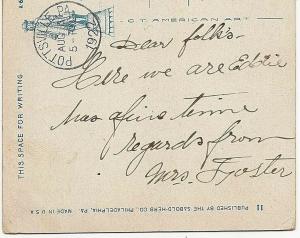 POTTSVILLE, PA.
AUG
5
192
C.T. AMERICAN ART
Dear folks-
Here we are Eddie
has a fine time
regards from
Mrs. Foster
THIS SPACE FOR WRITING
11 PUBLISHED BY THE SABOLD-HERB CO., PHILADELPHIA, PA. MADE IN U.S.A.